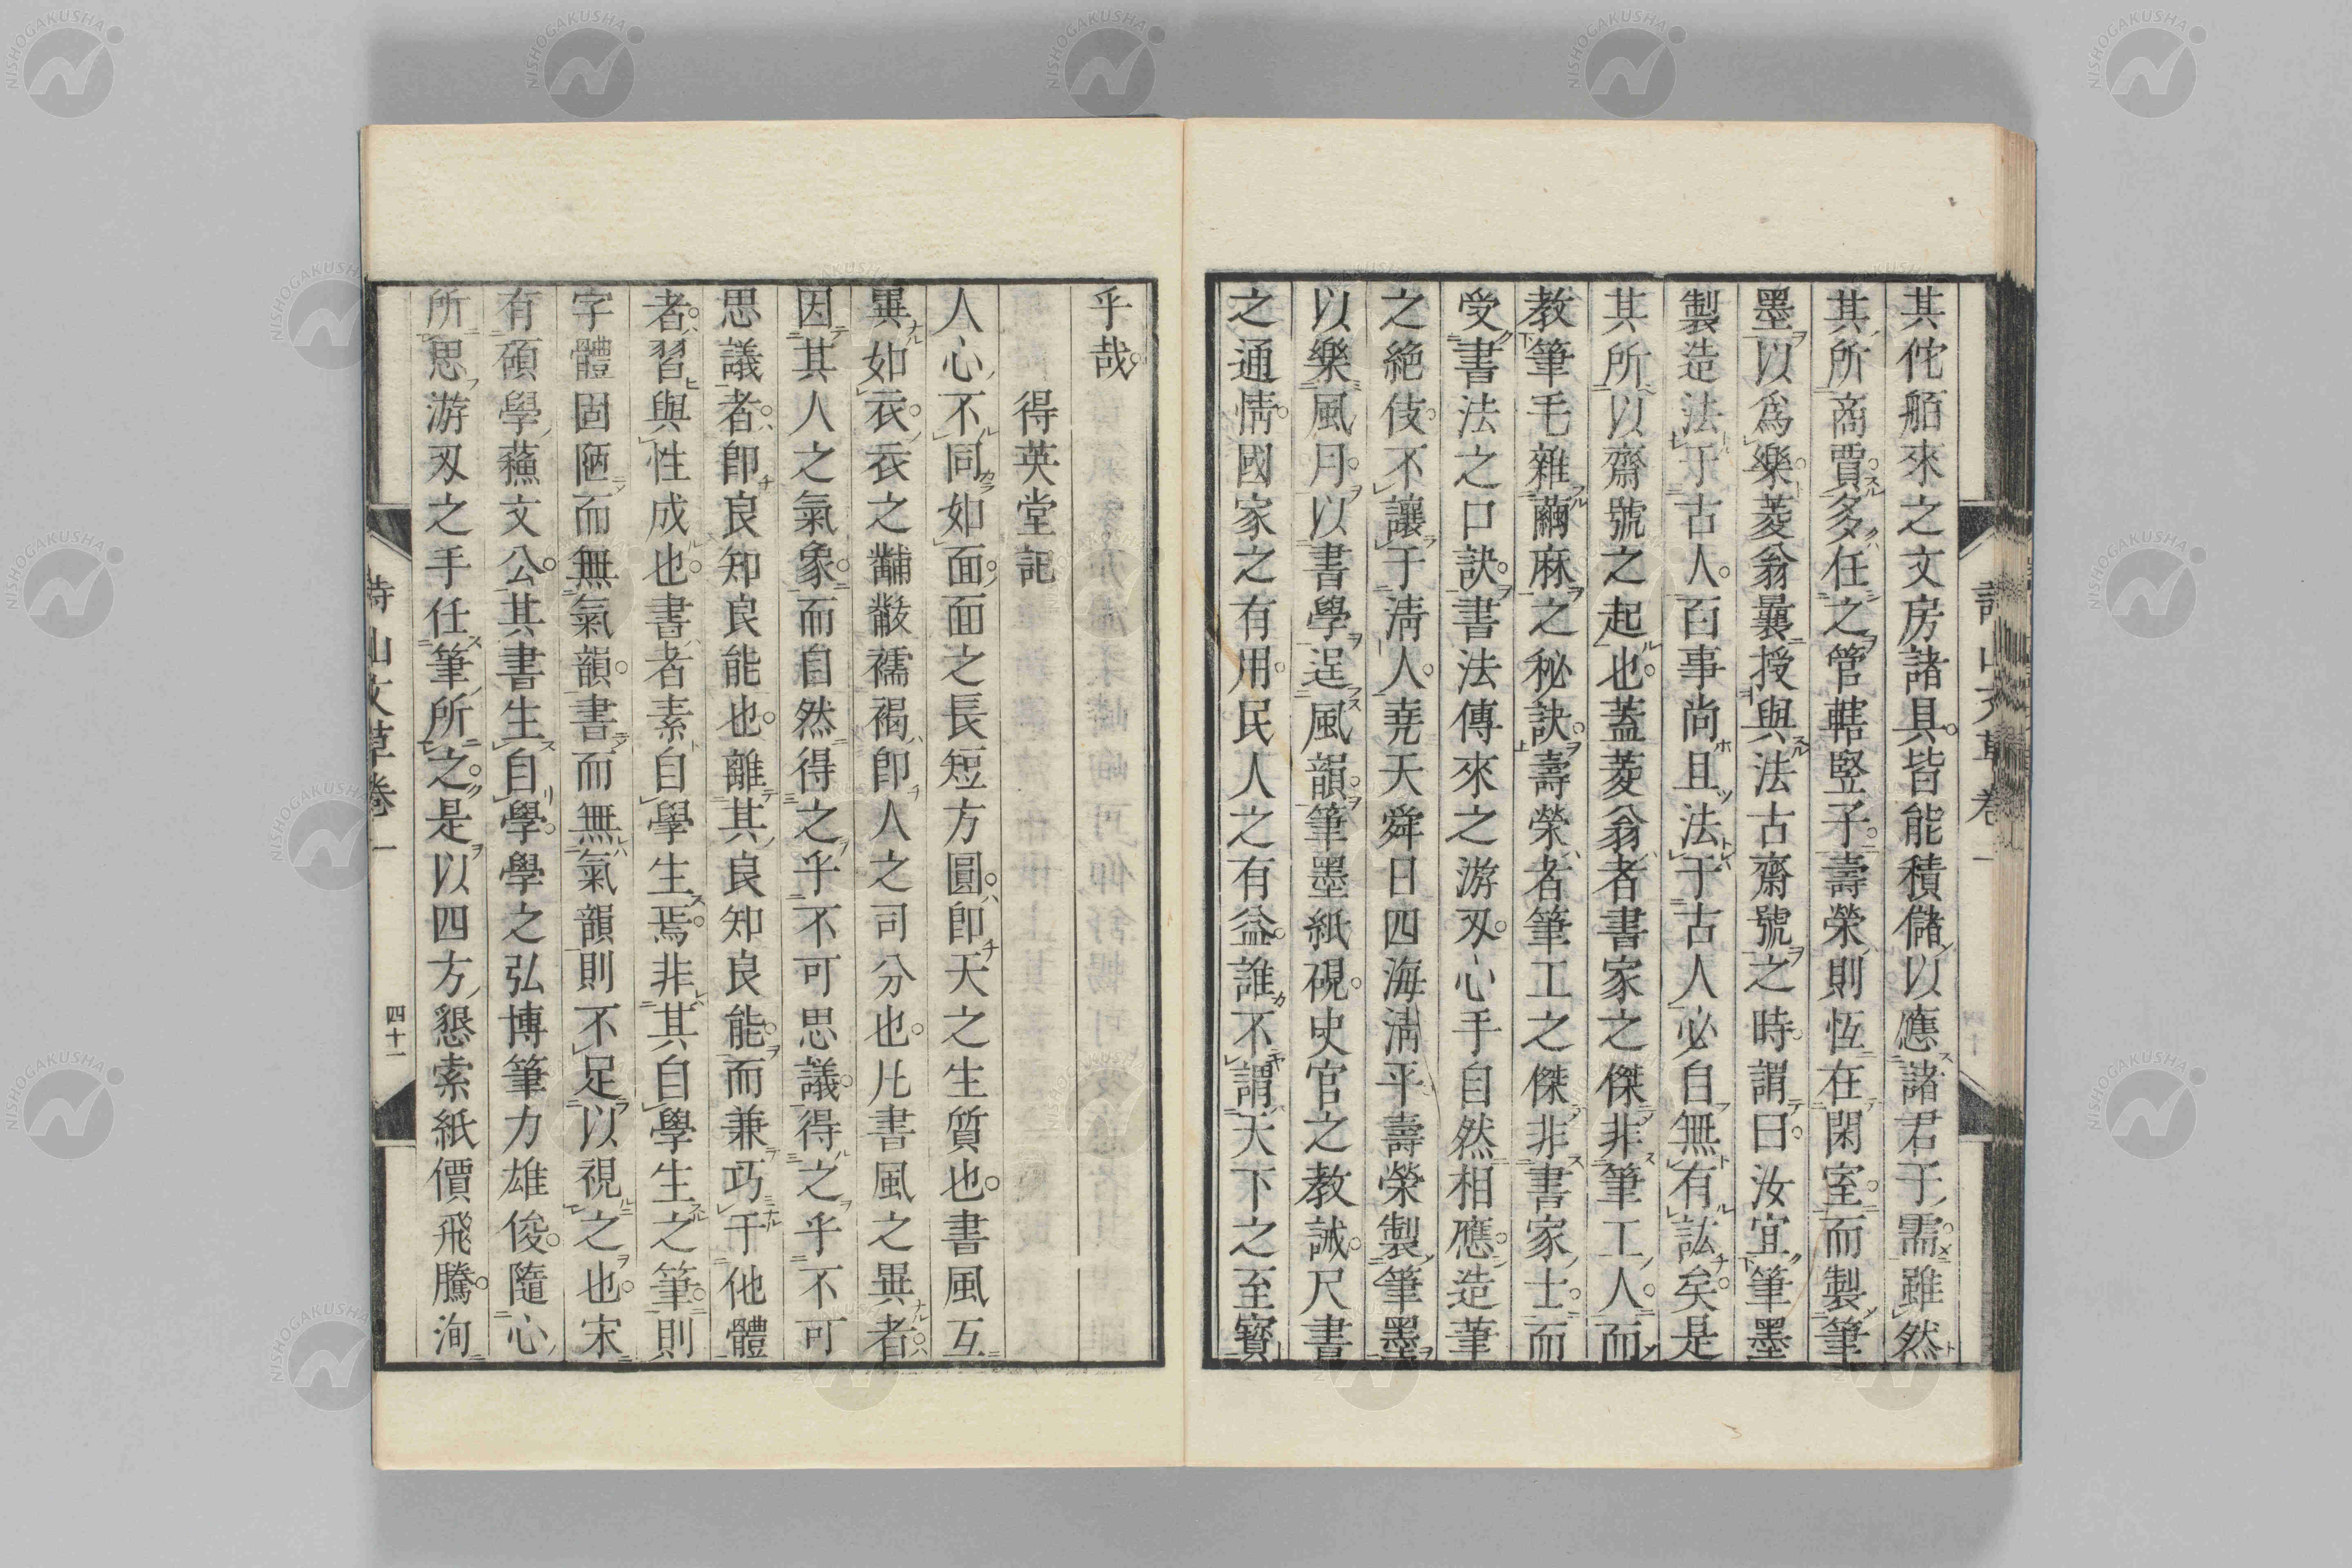 其佗舶來之文房諸具。皆能積儲以應諸君于需。雖然
其所商賈。多任之管轄竪子。壽榮則恆在閑室。而製筆
墨以爲樂。菱翁曩授與法古齋號之時。謂曰。汝宜筆墨
製造法于古人。百事尚且法于古人必自無有訟矣。是
其所以齋號之起也。蓋菱翁者書家之傑非筆工人。而
教筆毛雜繭麻之秘訣。壽榮者筆工之傑非書家士。而
受書法之口訣。書法傳來之游刃。心手自然相應。造筆
之絶伎。不讓于淸人。堯天舜日四海淸平壽榮製筆墨
以樂風月。以書學逞風韻。筆墨紙硯。史官之教誡。尺書
之通情。國家之有用。民人之有益。誰不謂天下之至寶
乎哉。
得英堂記
人心不同如面。面之長短方圓。卽天之生質也。書風互
異如衣。衣之黼黻襦褐卽人之司分也。凡書風之異者。
因其人之氣象。而自然得之乎不可思議。得之乎不可
思議者。卽良知良能也。離其良知良能。而兼巧于他體
者。習與性成也。書者素自學生焉。非其自學生之筆。則
字體固陋而無氣韻。書而無氣韻則不足以視之也。宋
有碩學蘓文公。其書生自學。學之弘博筆力雄俊。隨心
所思游刃之手任筆所之。是以四方懇索紙價飛騰。洵
詩山文草卷一
四十一